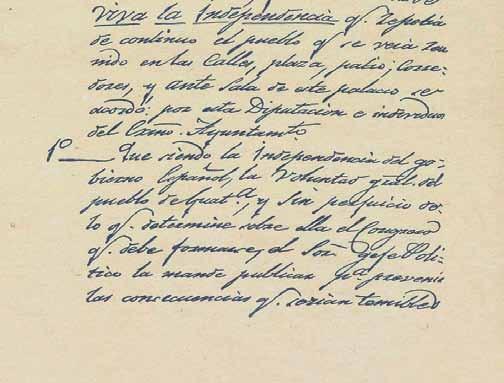 viva la Independencia q. repetia
de continuo el pueblo q se veia reu
nido en las Calles, plaza, patio, Corre-
dores, y ante Sala de este palacio se
acordó: por esta Diputacion e individuos
del Exmo. Ayuntamto
1º Que siendo la Independencia del go-
bierno Español, la Voluntad gral. del
pueblo de Guat.a, y Sin perjuicio de
lo q. determine sobre ella el Congreso
q. debe formarse, el Sor. Gefe Poli-
tico la mande publicar pa. prevenir
las consecuencias q. serian temibles